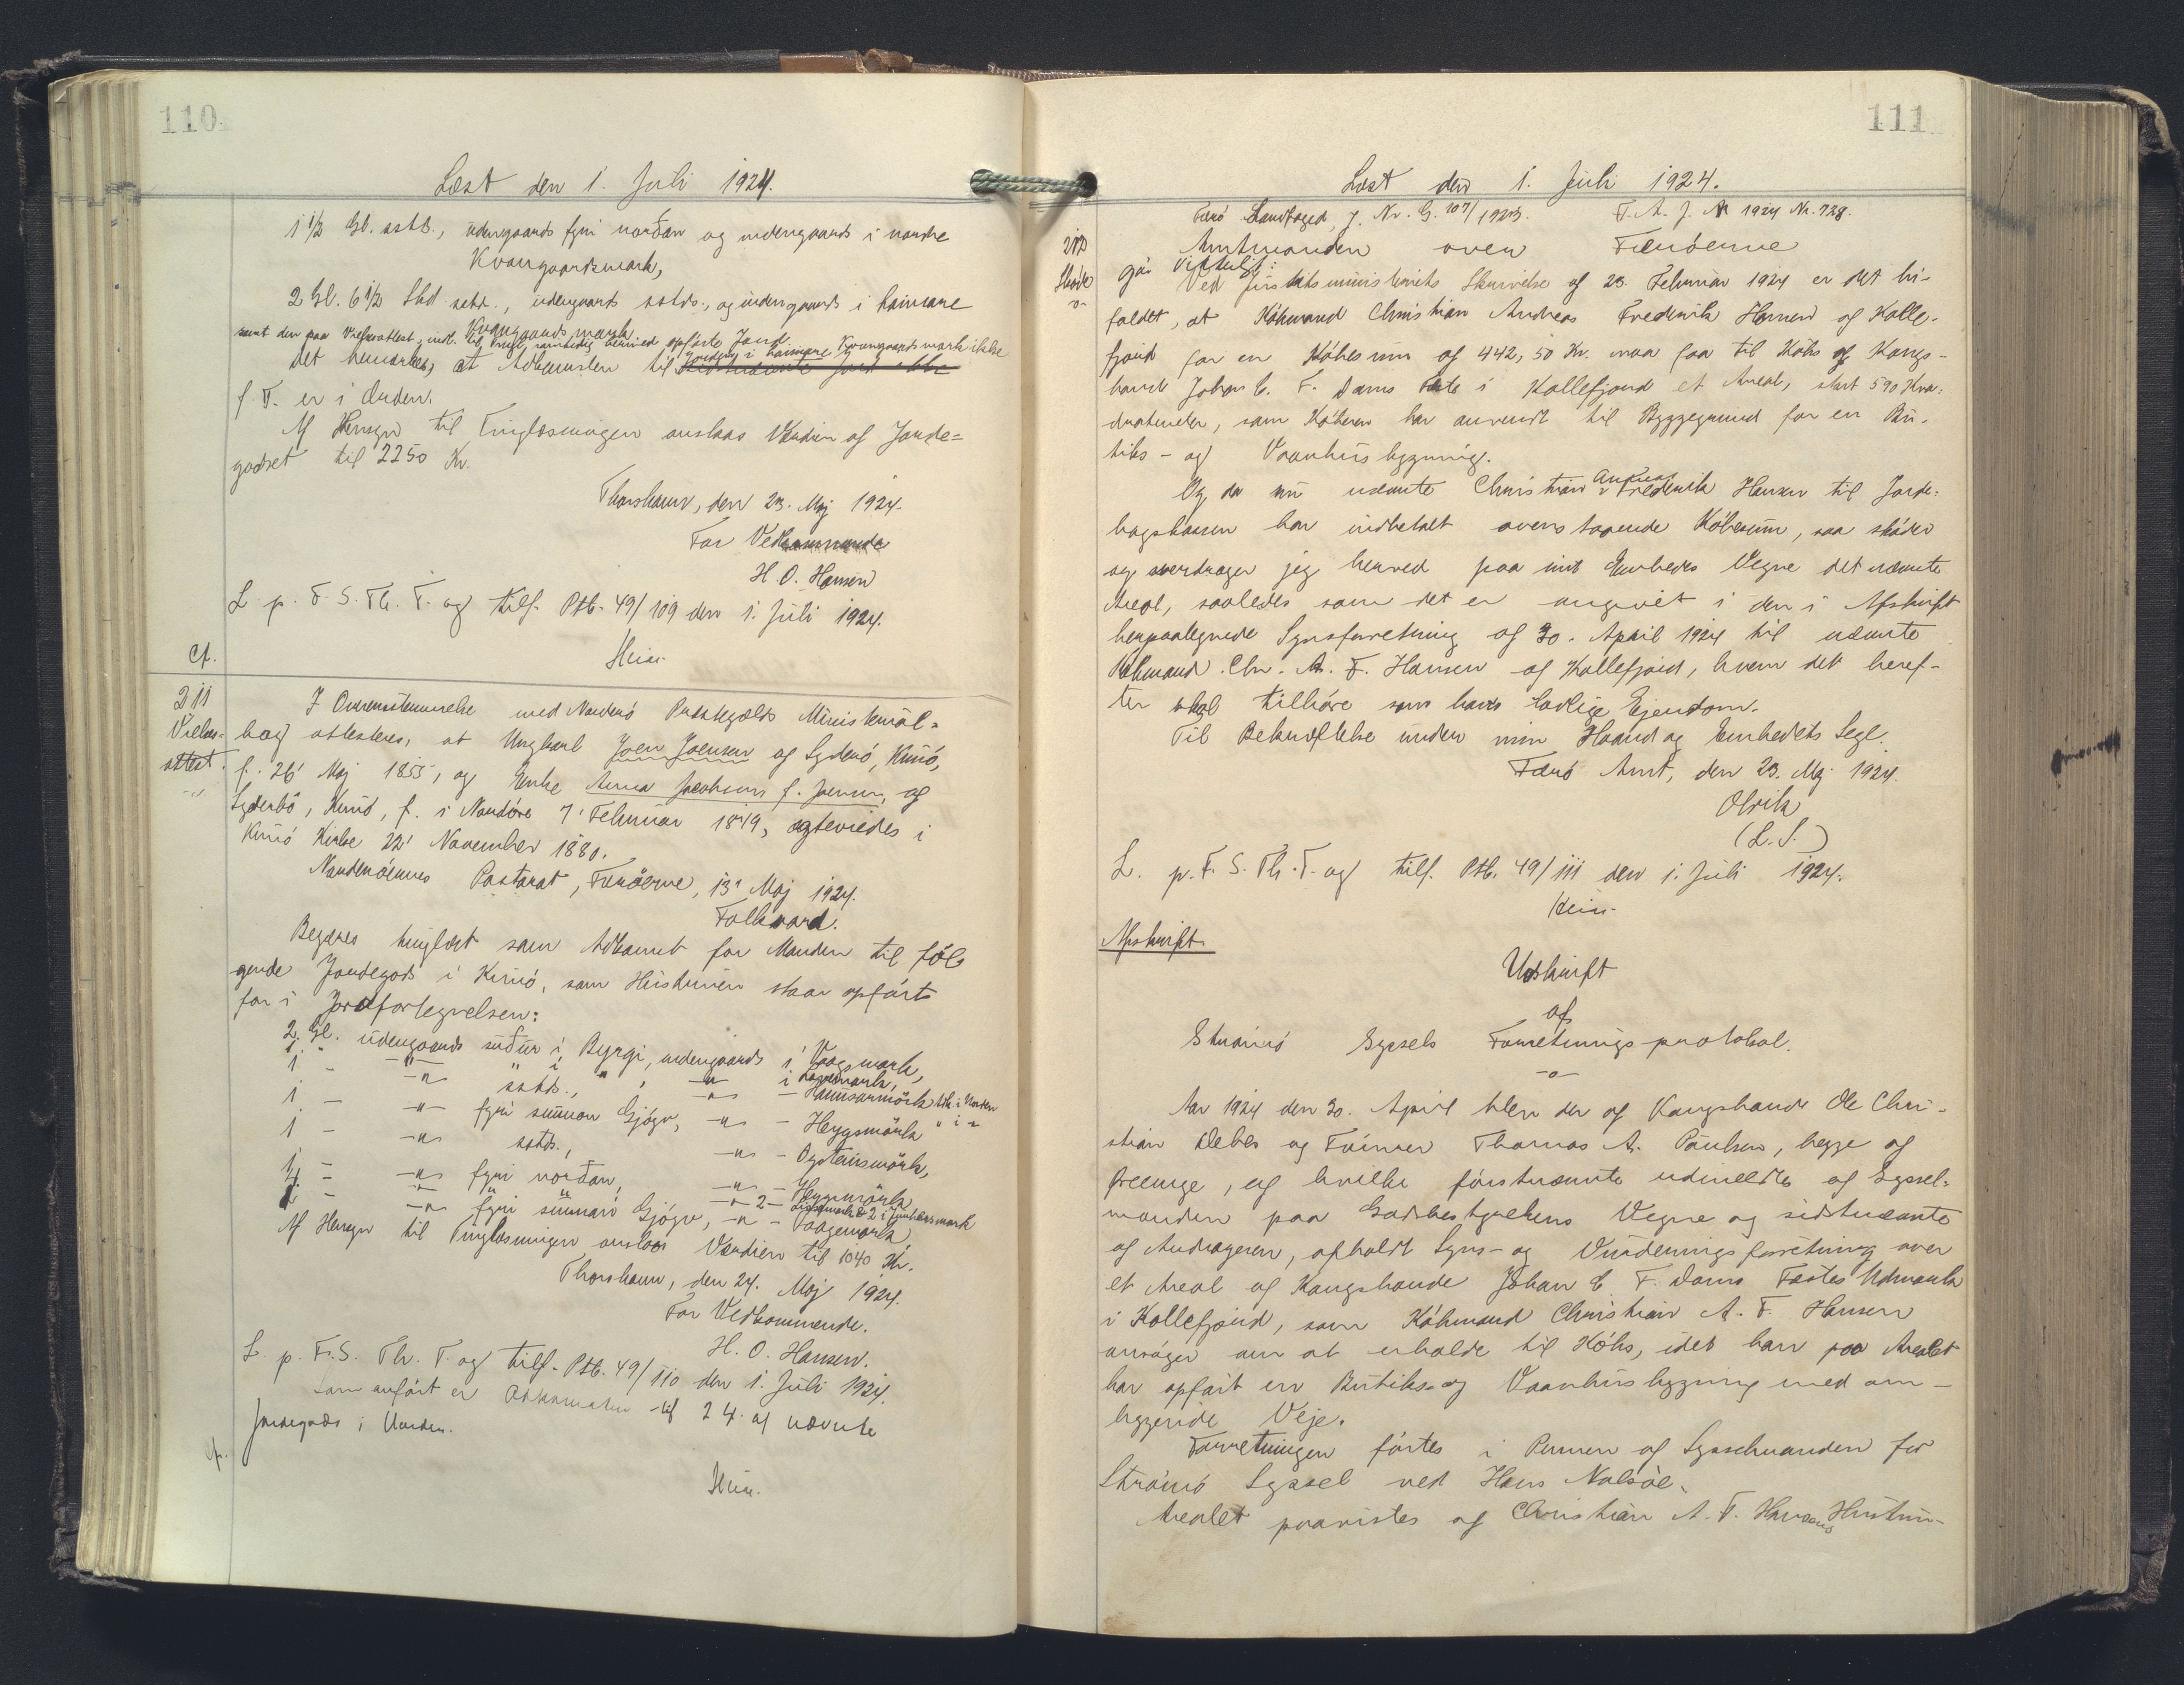 110.
Læst den 1. Juli 1924.
1 1/2 Gl. sstds., udengaards fyri norðan og indengaards i nordre
Kvangaardsmark,
2 Gl. 6 1/2 Skd sstds., udengaards sstds., og indengaards i heimare
Kvangaards mark
samt den paa Vielsesattest, indl. til samtidig hermed opførte Jord.
Det bemærkes, at Adkomsten til Jorden i heimare Kvangaardsmark ikke
f. T. er i Orden.
Af Hensyn til Tinglæsningen anslaas Værdien af Jorde=
godset til 2250 Kr.
Thorshavn, den 23. Maj 1924.
For Vedkommende
H. O. Hansen
L. p. F. S. Th. T. og tilf. Ptb. 49/109 den 1. Juli 1924.
Heise.
Cf.
211
Vielses-
attest.
I Overensstemmelse med Norderø Præstegælds Ministerial=
bog attesteres, at Ungkarl Joen Joensen af Syderø, Kunø,
f. 26' Maj 1855, og Enke Anna Jacobsens f. Joensen, af
Syderbø, Kunø, f. i Nordøre 7' Februar 1849, ægteviedes i
Kunø Kirke 22' November 1880.
Norderøernes Pastorat, Færøerne, 13' Maj 1924.
Folkvard.
Begæres tinglæst som Adkomst for Manden til føl-
gende Jordegods i Kunø, som Hustruen staar opført
for i Jordfortegnelsen:
2. Gl. udengaards suður i Byrgi, indengaards i Vaagsmark,
1 " - " - " i " , - " - i
1 - - " - sstds., - " - - Heimsarmörk btk. i Norden
1 - - " - fyri sunnan Gjógv, - " - - Heygsmörk " i "
1 - - " - sstds., - " - - Oysteinsmörk,
1/4 - - " - fyri norðan, - " - - Heygsmörk
2 - - " - fyri sunnan Gjógv, - " - - Vaagsmark
Af Hensyn til Tinglæsningen anslaas Værdien til 1040 Kr.
Thorshavn, den 24. Maj 1924.
For Vedkommende.
H. O. Hansen.
L. p. F. S. Th. T. og tilf. Ptb. 49/110 den 1. Juli 1924.
som anført er Adkomsten til 2 4. af nævnte
Jordegods i Uorden.
cf.
Heise.
111
Læst den 1. Juli 1924.
Færø Landfoged J. Nr. G. 107/1923. F. A. J. N 1924 Nr. 728.
212
Skøde
-o-
Amtmanden over Færøerne
gør vitterligt:
Ved Justitsministeriets Skrivelse af 23. Februar 1924 er det bi-
faldet, at Købmand Christian Andreas Frederik Hansen af Kolle-
fjord for en Købesum af 442,50 Kr. maa faa til Købs af Kongs-
bonde Johan C. F. Dams Fæste i Kollefjord et Areal, stort 590 Kva-
dratmeter, som Køberen har anvendt til Byggegrund for en Bu-
tiks- og Vaanhusbygning.
Og da nu nævnte Christian Andreas Frederik Hansen til Jorde-
bogskassen har indbetalt ovenstaaende Købesum, saa skøder
og overdrager jeg herved paa mit Embeds Vegne det nævnte
Areal, saaledes som det er angivet i den i Afskrift
herpaategnede Synsforretning af 30. April 1924 til nævnte
Købmand Chr. A. F. Hansen af Kollefjord, hvem det heref-
ter skal tilhøre som hans lovlige Ejendom.
Til Bekræftelse under min Haand og Embedets Segl.
Færø Amt, den 23. Maj 1924.
Olrik
(L. S.)
L. p. F. S. Th. T. og tilf. Ptb. 49/111 den 1. Juli 1924.
Heise.
Afskrift.
Udskrift
af
Strømø Syssels Forretningsprotokol.
-o-
Aar 1924 den 30. April blev der af Kongsbonde Ole Chri-
stian Debes og Tømrer Thomas A. Poulsen, begge af
, af hvilke førstnævnte udmeldtes af Syssel-
manden paa Godsbestyrelsens Vegne og sidstnævnte
af Andrageren, afholdt Syns- og Vurderingsforretning over
et Areal af Kongsbonde Johan C. F. Dams Fæstes Udmark
i Kollefjord, som Købmand Christian A. F. Hansen
ansøger om at erholde til Købs, idet han paa Arealet
har opført en Butiks- og Vaanhusbygning med om-
liggende Veje.
Forretningen førtes i Pennen af Sysselmanden for
Strømø Syssel ved Hans Nolsøe.
Arealet paavistes af Christian A. F. Hansens Hustru-